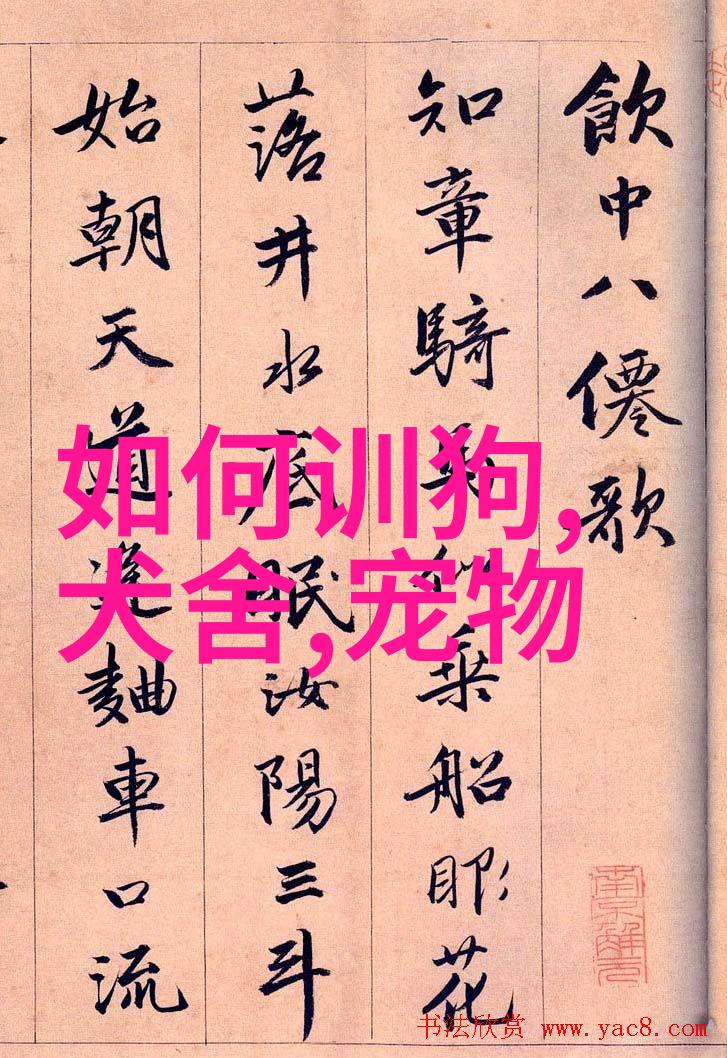 飲中八僊歌
知章騎馬似乘船眼花
落井水底眠汝陽三斗
始朝天道逢麯車口流
如何训狗,
犬舍,宠物
南京解元
书法欣赏 www.yac8.com